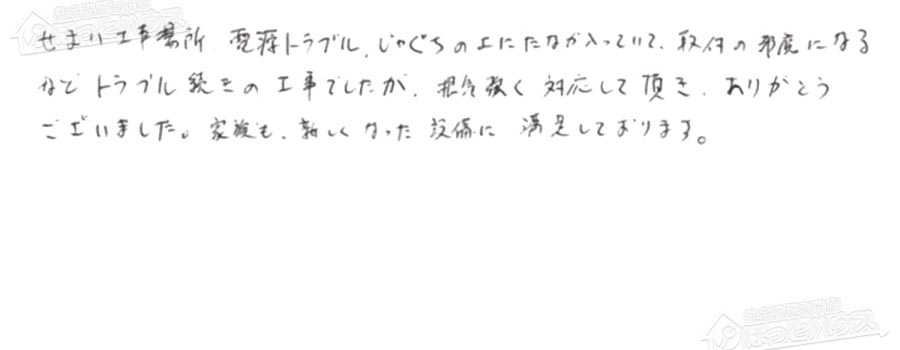 せまい工事場所 電源トラブル、じゃぐちの上にたなが入っていて、取付の邪魔になる
などトラブル続きの工事でしたが、根気強く対応して頂き、ありがとう
ございました。家族も、新しくなった設備に満足しております。
ほっとハウス
ほっとハウス